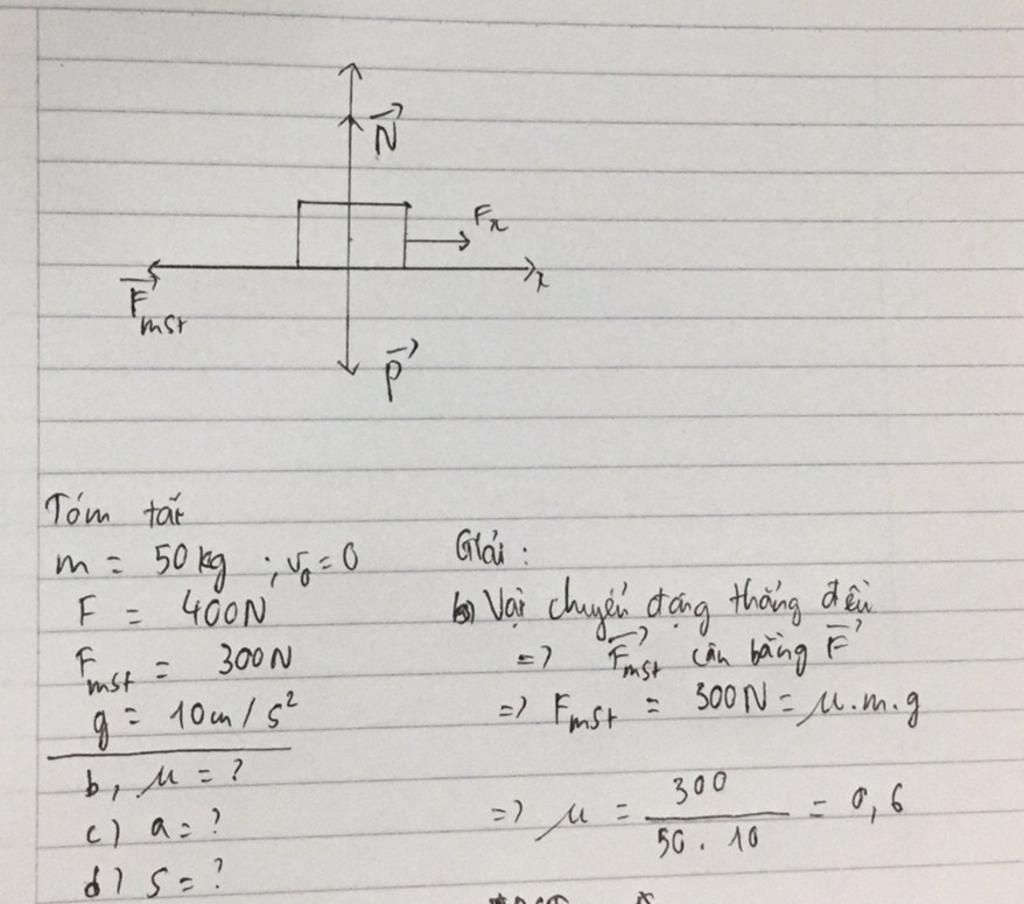 N
Fx
x
Fmst
P
Tóm tắt
m = 50 kg ; v₀ = 0
F = 400N
Fmst = 300N
g = 10m/s²
b, μ = ?
c) a = ?
d) S = ?
Giải :
b) Vật chuyển động thẳng đều
=> Fmst cân bằng F
=> Fmst = 300N = μ.m.g
=> μ = 300 / 50 . 10 = 0,6